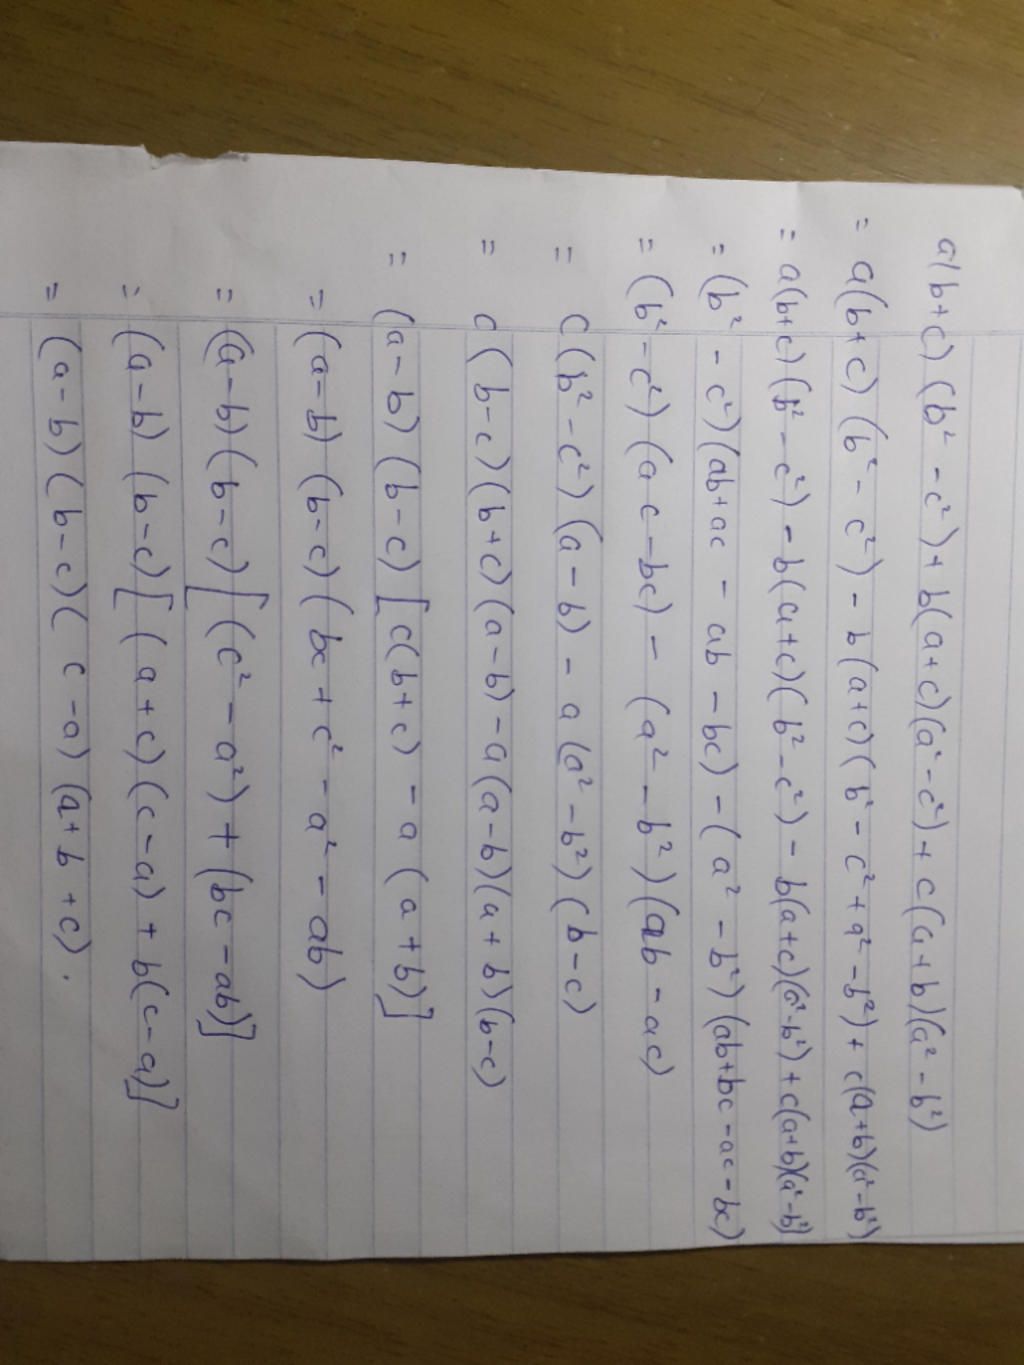 a(b+c) (b² - c²) + b(a+c)(a² - c²) + c(a+b)(a² - b²)
= a(b+c) (b² - c²) - b(a+c)(b² - c² + a² - b²) + c(a+b)(a² - b²)
= a(b+c) (b² - c²) - b(a+c)(b² - c²) - b(a+c)(a² - b²) + c(a+b)(a² - b²)
= (b² - c²)(ab+ac - ab - bc) - (a² - b²)(ab+bc - ac - bc)
= (b² - c²) (ac - bc) - (a² - b²)(ab - ac)
= c(b² - c²) (a - b) - a(a² - b²)(b - c)
= c(b-c)(b+c)(a-b) - a(a-b)(a+b)(b-c)
= (a-b)(b-c)[c(b+c) - a(a+b)]
= (a-b)(b-c)(bc + c² - a² - ab)
= (a-b)(b-c)[(c² - a²) + (bc - ab)]
= (a-b)(b-c)[(a+c)(c-a) + b(c-a)]
= (a-b)(b-c)(c-a)(a+b+c).